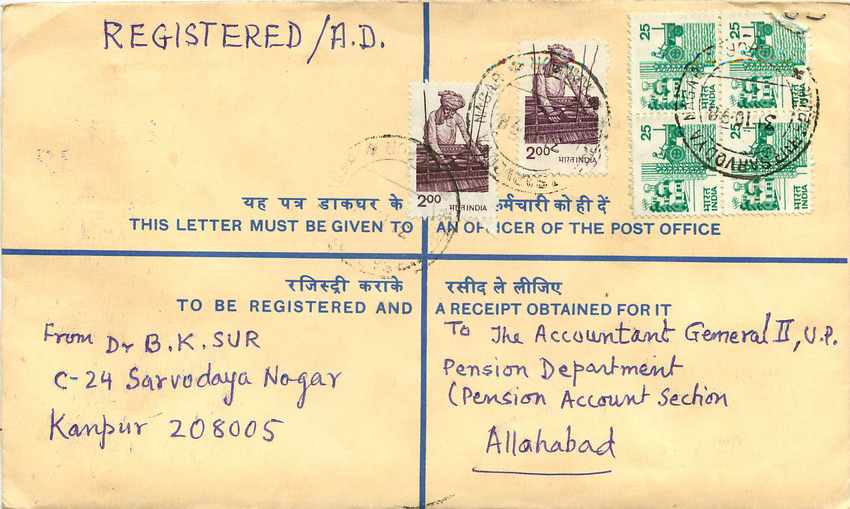 REGISTERED/A.D.
25
25
25
25
भारत INDIA
भारत INDIA
भारत INDIA
भारत INDIA
2.00
भारत INDIA
2.00
भारत INDIA
SARVODAYA NAGAR
यह पत्र डाकघर के कर्मचारी को ही दें
THIS LETTER MUST BE GIVEN TO AN OFFICER OF THE POST OFFICE
रजिस्ट्री कराके रसीद ले लीजिए
TO BE REGISTERED AND A RECEIPT OBTAINED FOR IT
From Dr B.K. SUR
C-24 Sarvodaya Nagar
Kanpur 208005
To The Accountant General II, U.P.
Pension Department
(Pension Account Section
Allahabad